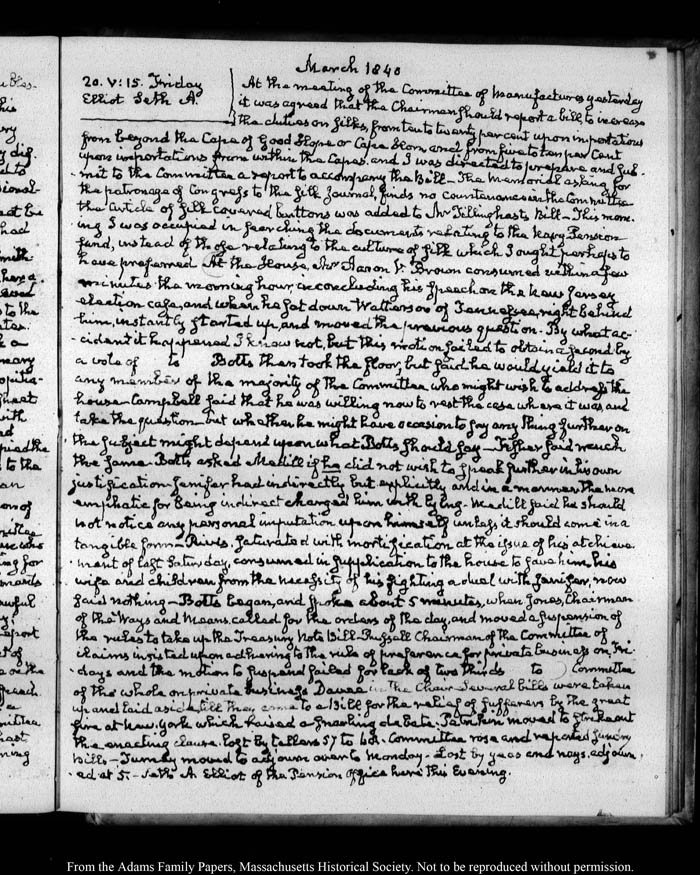 March 1840
20. V:15. Friday
Elliot Seth A.
At the meeting of the Committee of Manufactures yesterday
it was agreed that the Chairman should report a bill to increase
the duties on silks, from ten to twenty per cent upon importations
from beyond the Cape of Good Hope or Cape Horn, and from five to ten per Cent
upon importations from within the Capes, and I was directed to prepare and sub-
mit to the Committee a report to accompany the Bill— The memorial asking for
the patronage of Congress to the silk Journal, finds no countenance in the Committee
the article of silk covered buttons was added to Mr Tillinghast's Bill— This morn-
ing I was occupied in searching the documents relating to the Navy Pension
fund, instead of those relating to the culture of silk which I ought perhaps to
have preferred. At the House, Mr Aaron V. Brown consumed within a few
minutes the morning hour, in concluding his speech on the New Jersey
election case, and when he sat down Watterson of Tennessee, right behind
him, instantly started up, and moved the previous question. By what ac-
cident it happened I know not, but this motion failed to obtain a second by
a vote of to Botts then took the floor, but said he would yield it to
any member of the majority of the Committee who might wish to address the
house. Campbell said that he was willing now to rest the case where it was and
take the question but whether he might have occasion to say any thing further on
the subject might depend upon what Botts should say— Fisher said much
the same. Botts asked Medill if he did not wish to speak further in his own
justification. Jenifer had indirectly but explicitly and in a manner the more
emphatic for being indirect charged him with lying. Medill said he should
not notice any personal imputation upon himself unless it should come in a
tangible form. Rives, saturated with mortification at the issue of his atchieve-
ment of last Saturday, consumed in supplication to the house to save him, his
wife and children from the necessity of his fighting a duel with Jenifer, now
said nothing— Botts began, and spoke about 5 minutes, when Jones, Chairman
of the Ways and Means, called for the orders of the day, and moved a suspension of
the rules to take up the Treasury Note Bill— Russell Chairman of the Committee of
claims insisted upon adhering to the rule of preference for private business on Fri-
days and the motion to suspend failed for lack of two thirds to Committee
of the whole on private business Dawson in the Chair Several bills were taken
up and laid aside till they came to a Bill for the relief of sufferers by the great
fire at New-York which raised a snarling debate. Petrikin moved to strike out
the enacting clause. lost by tellers 57 to 60. Committee rose and reported sundry
bills— Turney moved to adjourn over to Monday. Lost by yeas and nays. adjourn-
ed at 5.— Seth A Elliot of the Pension Office here this Evening.
From the Adams Family Papers, Massachusetts Historical Society. Not to be reproduced without permission.